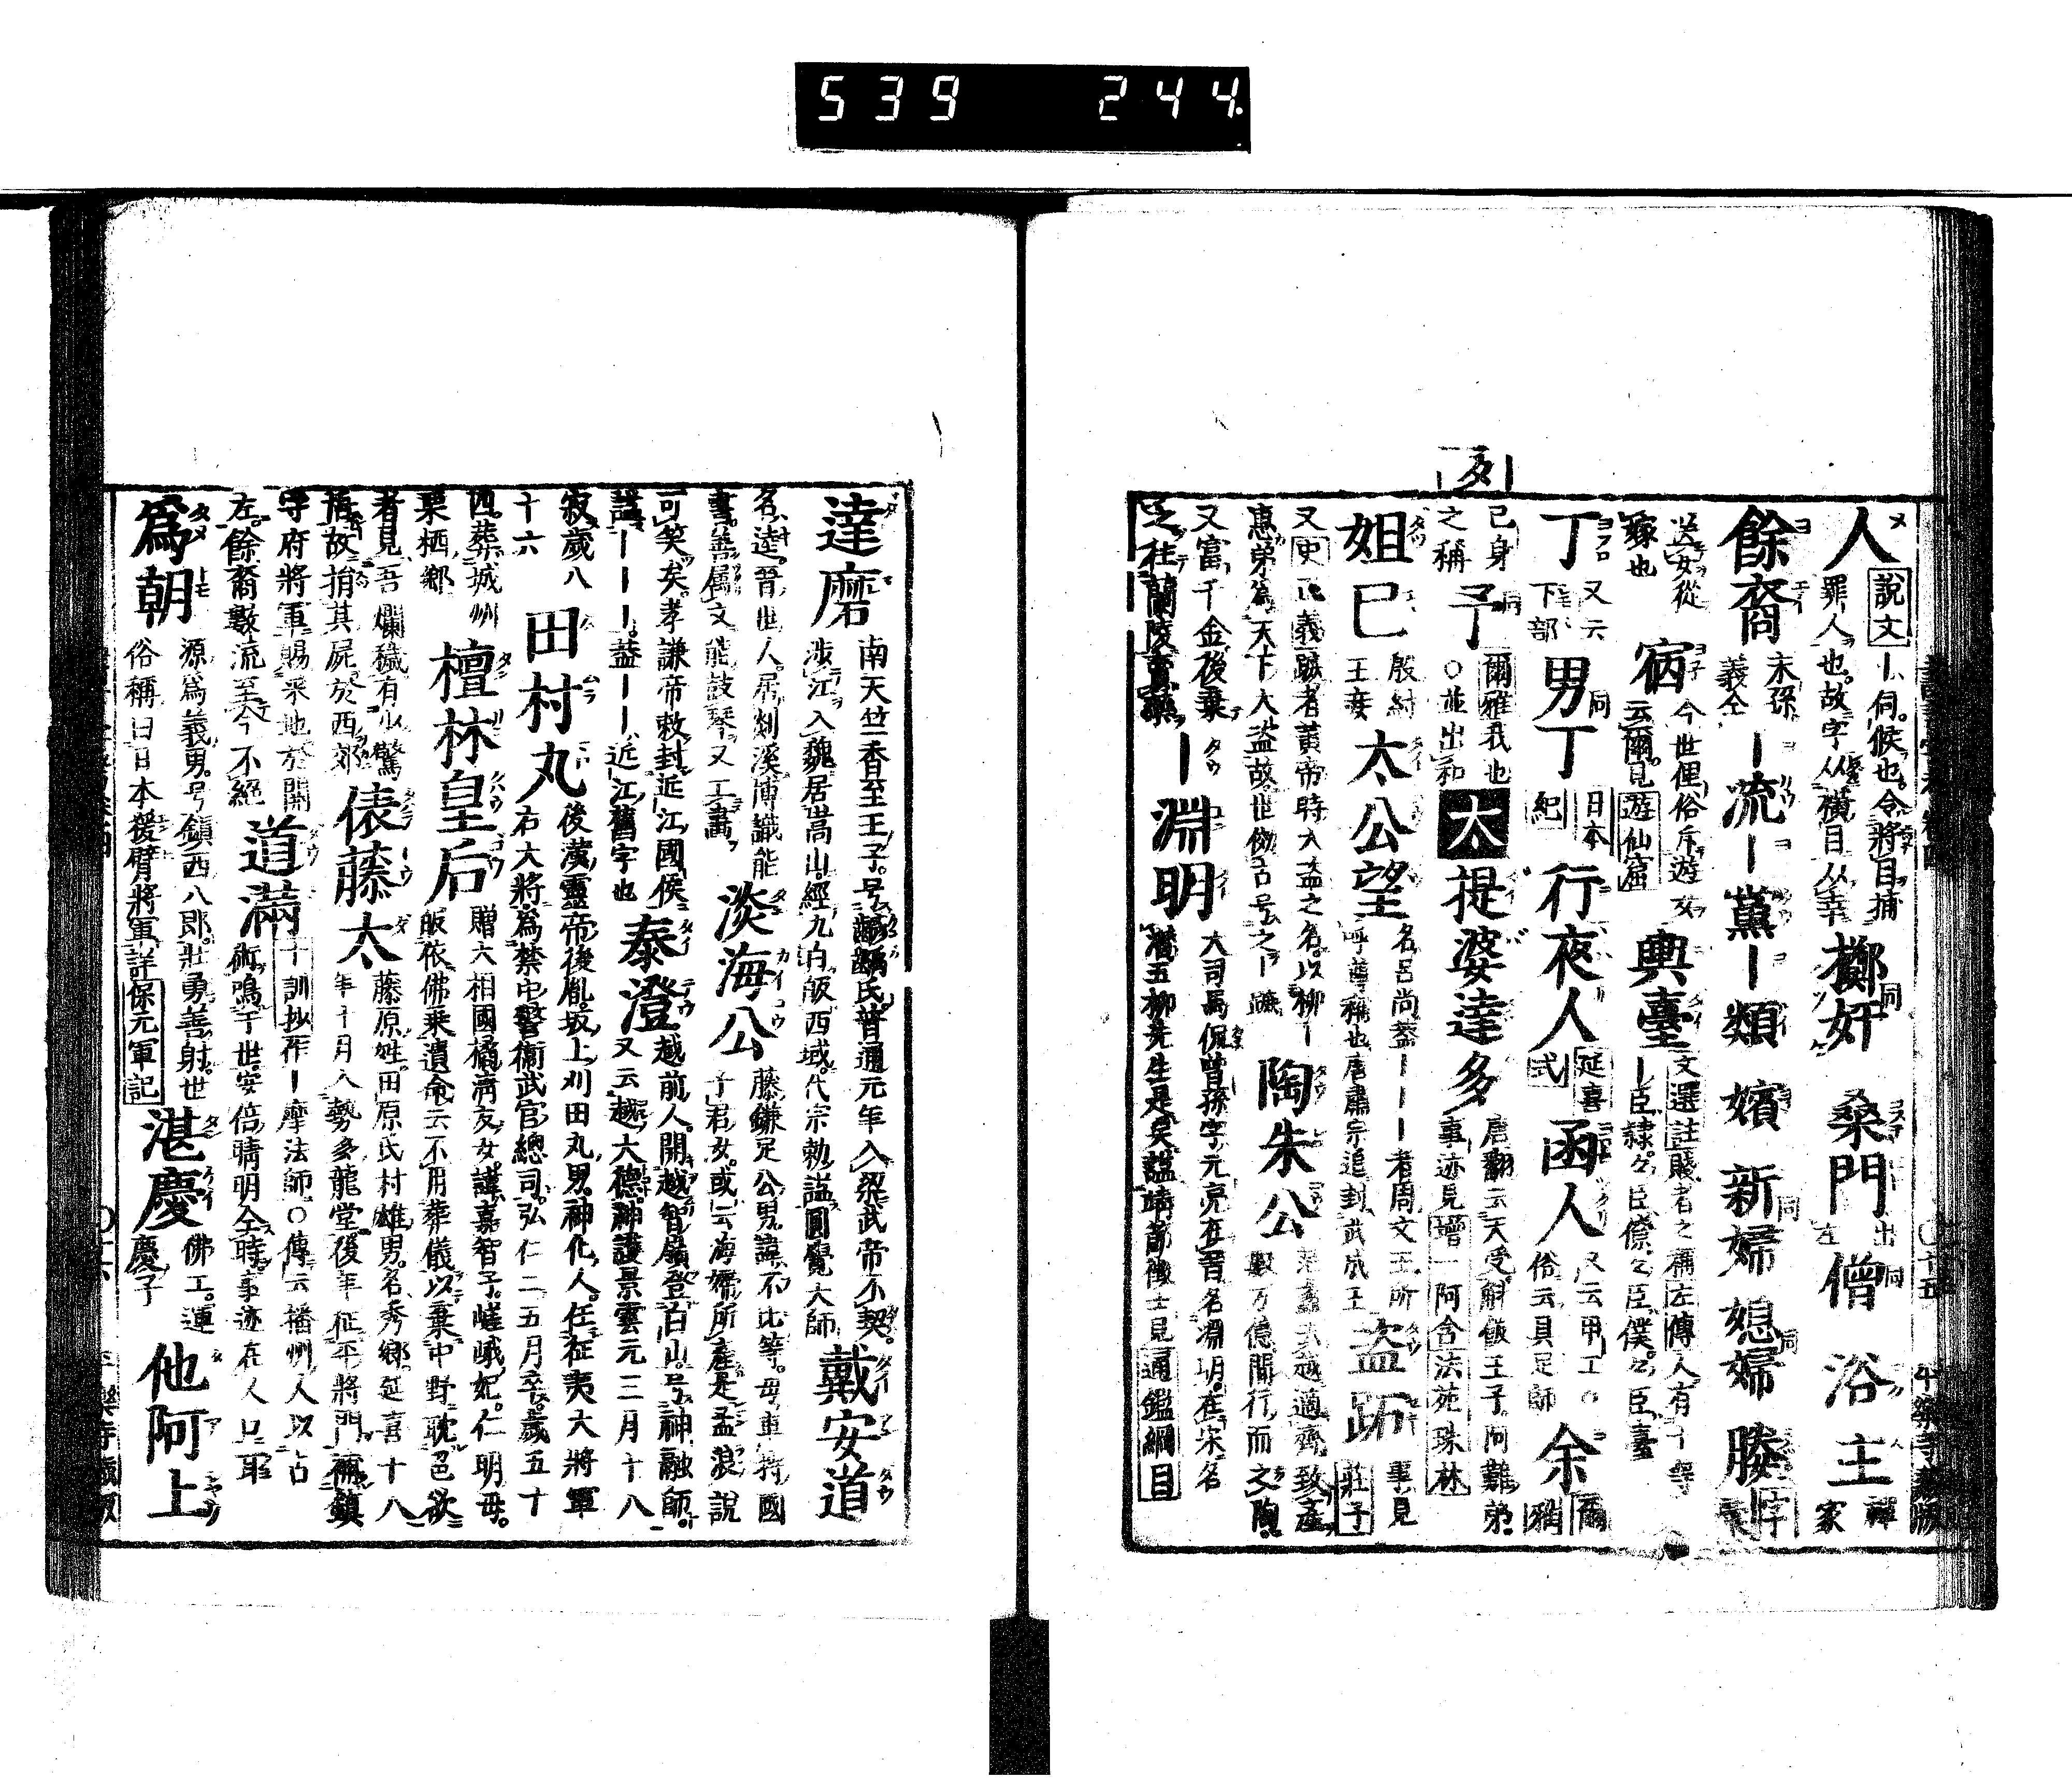 539 244
タ
人 説文ー伺候也令將目捕
罪人也故字从橫目从幸
擲奸 同 桑門 出左 僧 同 浴主 禪家
餘裔 末孫義仝 ー流 ー黨 ー類 嬪 新婦 同 媳婦 同 媵
送女從嫁也 㝛 今世俚俗斥遊女云爾見遊仙窟 輿臺 文選註賤者之稱左傳人有十等ー臣隸々臣僚々臣僕々臣臺
丁 又云下部 男丁 同 日本紀 行夜人 延喜式 函人 又云甲工俗云具足師 余 爾雅
己身之稱 予 同 爾雅我也○並出和 太 提婆達多 唐翻云天受斛飯王子阿難弟事迹見增一阿含法苑珠林
妲己 殷紂王妾 太公望 名呂尚蓋ーーー者周文王所呼尊稱也唐肅宗追封武成王 盗跖 事見莊子
又史正義蹠者黃帝時大盗之名以柳ー
惠弟爲天下大盗故世倣古号之ー蹠 陶朱公 越適齊致產數万億間行而之陶
又富千金後棄
之往蘭陵賣藥 ー淵明 大司馬侃曾孫字元亮在晋名淵明在宋名潛五柳先生是矣謚靖節徵士見通鑑綱目
達磨 南天竺香至王子号 氏普通元年入梁武帝不契
涉江入魏居嵩山經九白皈西域代宗勅謚圓覺大師 戴安道
名逵晋世人居剡溪博識能
書善属文能鼓琴又工畫 淡海公 藤鎌足公男諱不比等母車持國子君女或云海孀所產是孟浪說
可笑矣孝謙帝敕封近江國侯
諡ーーー蓋ーー近江舊字也 泰澄 越前人開越智嶺登白山号神融師又云越大德神護景雲元三月十八
寂歲八
十六 田村丸 後漢靈帝後胤坂上刈田丸男神化人任征夷大將軍右大將爲禁中警衞武官總司弘仁二五月卒歲五十
西葬城州
栗栖鄉 檀林皇后 贈六相國橘淸友女諱嘉智子嵯峨妃仁明母皈依佛乗遺命云不用葬儀以棄中野耽色欲
者見吾爛穢有少驚
悟故捐其屍於西郊 俵藤太 藤原姓田原氏村雄男名秀鄉延喜十八年十月入勢多龍堂後年征平將門補鎭
守府將軍賜釆地於關
左餘裔數流至今不絕 道滿 十訓抄作ー摩法師○傳云播州人以占術鳴于世安倍晴明仝時事迹在人口耳
爲朝 源爲義男号鎭西八郎壯勇善射世俗稱曰日本猨臂將軍詳保元軍記 湛慶 佛工運慶子 他阿上